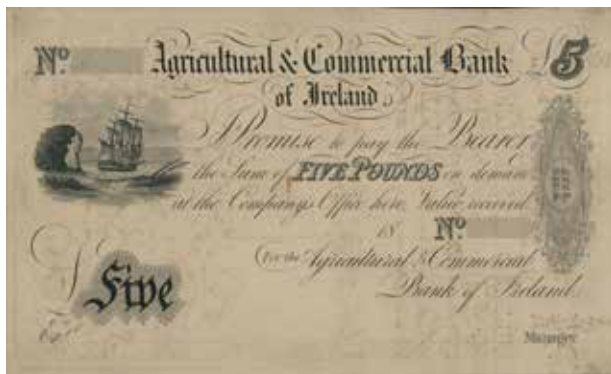 No Agricultural & Commercial Bank £5
of Ireland
I Promise to pay the Bearer
the Sum of FIVE POUNDS on demand
at the Company's Office here. Value received.
18 No
For the Agricultural & Commercial
Bank of Ireland.
£ Five
Manager